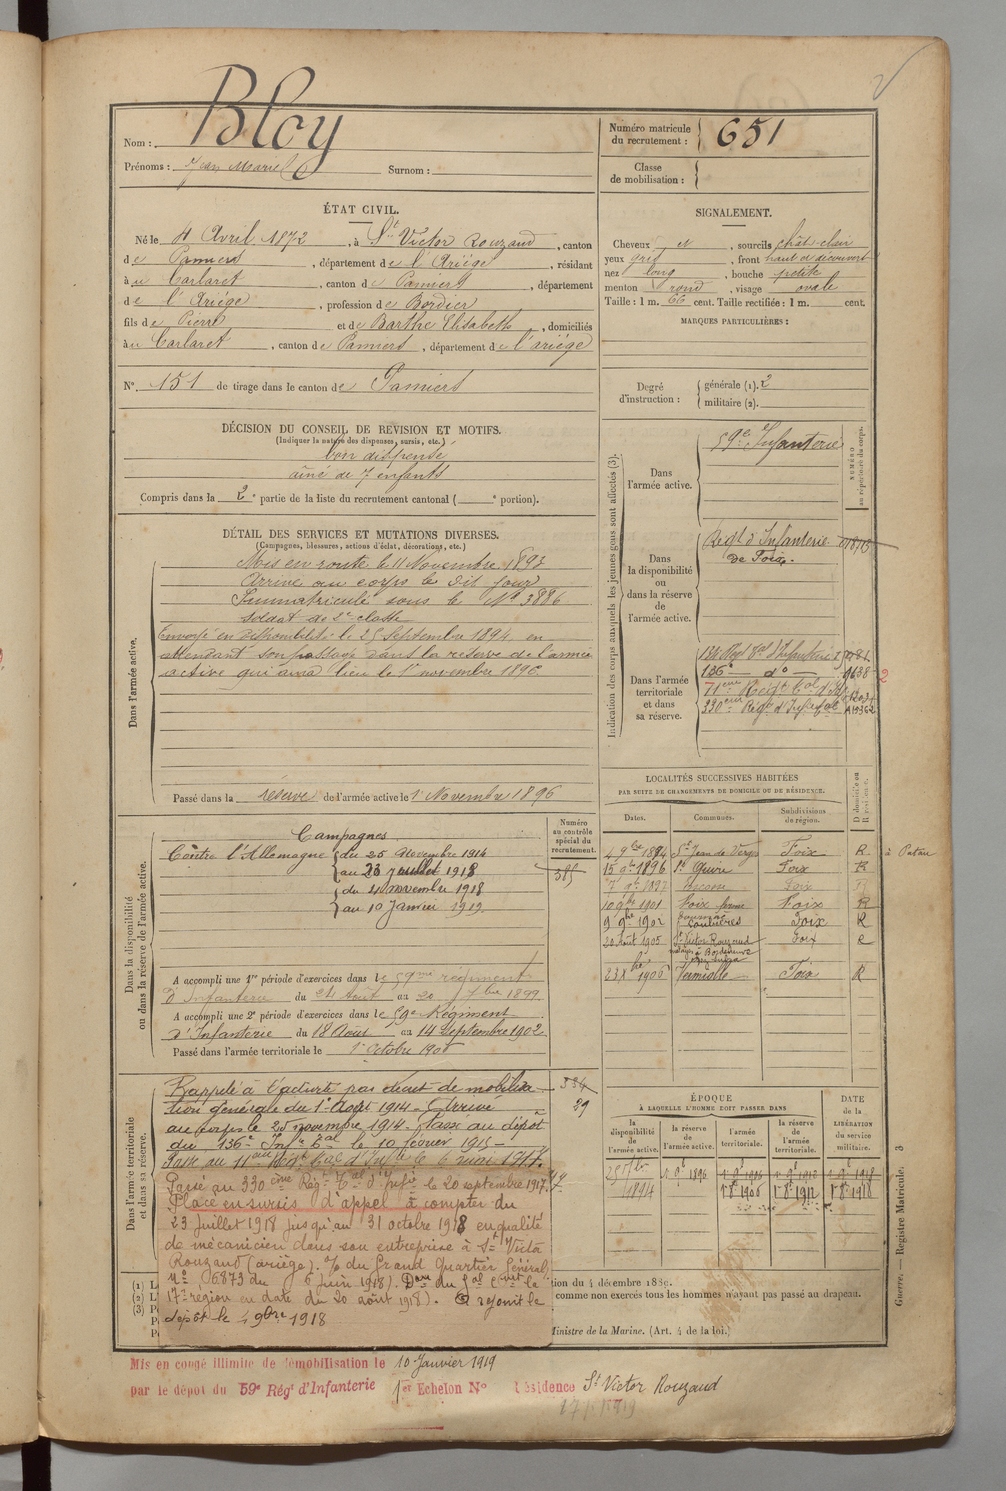 Bloy
Nom :
Prénoms : Jean Marie Surnom :
Numéro matricule du recrutement : 651
Classe de mobilisation :
ÉTAT CIVIL.
Né le 4 Avril 1872, à St Victor Rouzaud, canton
de Pamiers, département de l'Ariége, résidant
à u Carlaret, canton de Pamiers, département
de l'Ariége, profession de Bordier
fils de Pierre et de Barthe Elisabeth, domiciliés
à u Carlaret, canton de Pamiers, département de l'ariége
N° 151 de tirage dans le canton de Pamiers
SIGNALEMENT.
Cheveux et, sourcils chât-clair
yeux gris, front haut et découvert
nez long, bouche petite
menton rond, visage ovale
Taille : 1 m. 66 cent. Taille rectifiée : 1 m. cent.
MARQUES PARTICULIÈRES :
Degré d'instruction : générale (1). 2
militaire (2).
DÉCISION DU CONSEIL DE REVISION ET MOTIFS.
(Indiquer la nature des dispenses, sursis, etc.)
bon dispensé
aîné de 7 enfants
Compris dans la 2e partie de la liste du recrutement cantonal ( e portion).
DÉTAIL DES SERVICES ET MUTATIONS DIVERSES.
(Campagnes, blessures, actions d'éclat, décorations, etc.)
Dans l'armée active.
Mis en route le 11 Novembre 1893
Arrivé au corps le dit jour
Immatriculé sous le N° 3886
soldat de 2e classe
Envoyé en disponibilité le 25 Septembre 1894 en
attendant son passage dans la réserve de l'armée
active qui aura lieu le 1er novembre 1896
Passé dans la réserve de l'armée active le 1 Novembre 1896
Indication des corps auxquels les jeunes gens sont affectés (3).
NUMÉRO au répertoire du corps.
Dans l'armée active.
59e Infanterie
Dans la disponibilité ou dans la réserve de l'armée active.
Régt d'Infanterie
de Foix.
Dans l'armée territoriale et dans sa réserve.
136e do
71eme Régt
330eme Régt d'Inf
2
LOCALITÉS SUCCESSIVES HABITÉES
PAR SUITE DE CHANGEMENTS DE DOMICILE OU DE RÉSIDENCE.
Dates. Communes. Subdivisions de région. D domicile ou R résidence.
4 9bre 1894 St Jean de Verges Foix R
1896 Foix R
10 9bre 1901 Foix Foix R
9 9bre 1902 Foix R
20 août 1905 St Victor Rouzaud Foix R
1906 Foix R
Dans la disponibilité ou dans la réserve de l'armée active.
Numéro au contrôle spécial du recrutement.
385
Campagnes
Contre l'Allemagne du 25 Novembre 1914
au 23 juillet 1918
du 4 novembre 1918
au 10 Janvier 1919.
A accompli une 1re période d'exercices dans le 59me régiment
d'Infanterie du 24 Août au 20 7bre 1899
A accompli une 2e période d'exercices dans le 59e Régiment
d'Infanterie du 18 Août au 14 Septembre 1902
Passé dans l'armée territoriale le 1er Octobre 1906
Dans l'armée territoriale et dans sa réserve.
334
39
Rappelé à l'activité par décret de mobilisa
tion générale du 1er Août 1914. Arrivé
au corps le 25 novembre 1914. Passé au dépôt
du 136e Inf. Tal le 10 février 1915
Passé au 330eme Rég. Tal d'Infie le 20 septembre 1917.
Placé en sursis d'appel à compter du
23 juillet 1918 jusqu'au 31 octobre 1918 en qualité
de mécanicien dans son entreprise à St Victor
Rouzaud (ariége). du Grand Quartier Général
n° 6873 du 6 juin 1918).
17e région en date du 20 août 1918). A rejoint le
dépôt le 4 9bre 1918
ÉPOQUE
À LAQUELLE L'HOMME DOIT PASSER DANS
la disponibilité de l'armée active. la réserve de l'armée active. l'armée territoriale. la réserve de l'armée territoriale.
DATE de la LIBÉRATION du service militaire.
1894 1896 1906 1912 1918
(1)
(2)
(3)
tion du 4 décembre 1889.
comme non exercés tous les hommes n'ayant pas passé au drapeau.
Ministre de la Marine. (Art. 4 de la loi.)
Guerre. — Registre Matricule. 3
Mis en congé illimité de démobilisation le 10 Janvier 1919
par le dépôt du 59e Régt d'Infanterie 1er Echelon N° Résidence St Victor Rouzaud